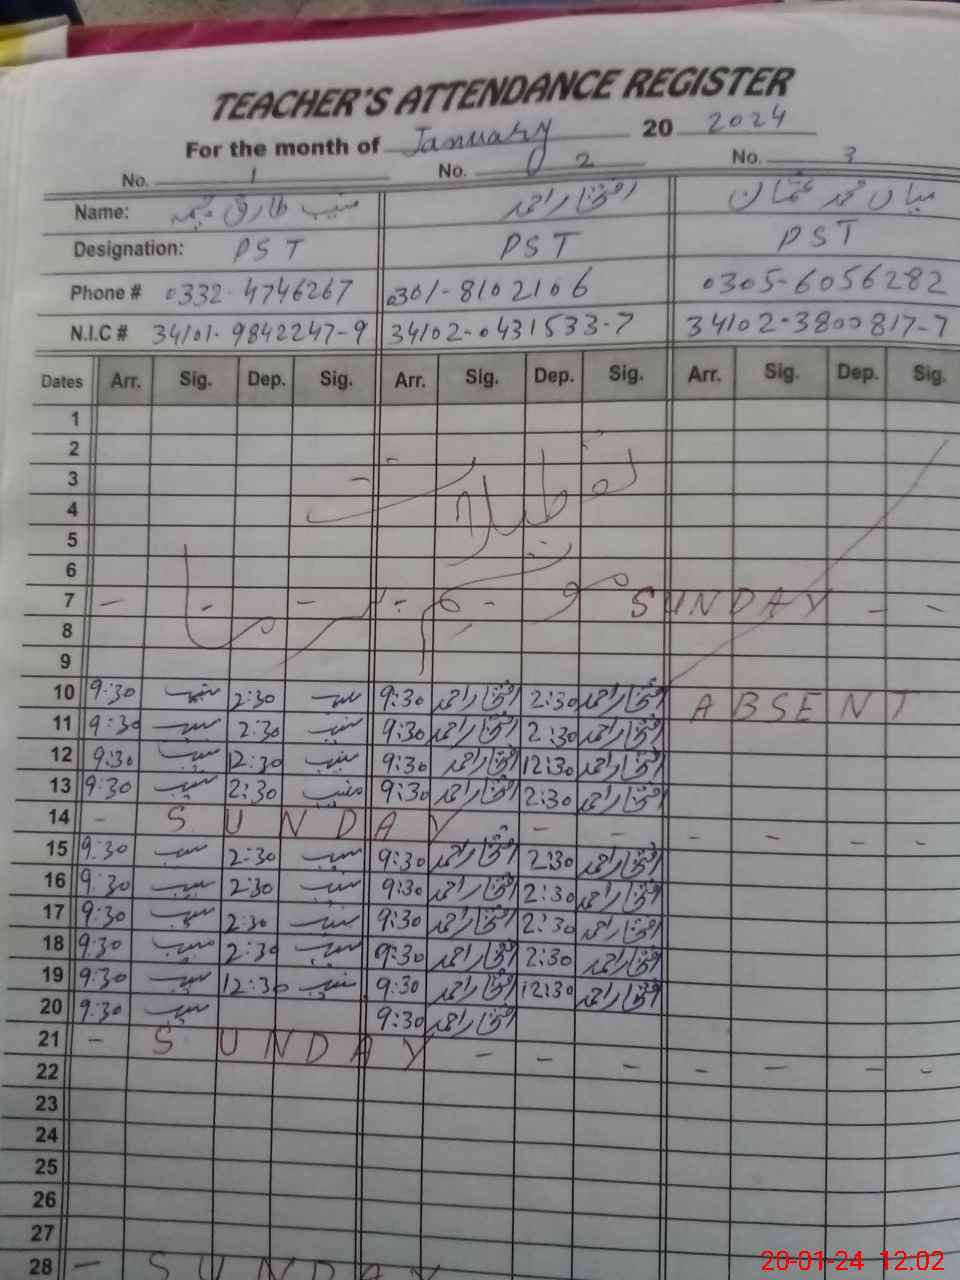 TEACHER'S ATTENDANCE REGISTER
For the month of January 20 2024
No. 1 No. 2 No. 3
Name: منیب طارق چیمہ افتخار احمد میاں محمد عثمان
Designation: PST PST PST
Phone # 0332-4746267 0301-8102106 0305-6056282
N.I.C # 34101-9842247-9 34102-0431533-7 34102-3800817-7
Dates Arr. Sig. Dep. Sig. Arr. Sig. Dep. Sig. Arr. Sig. Dep. Sig.
1
2
3 تعطیلات
4
5
6
7 - - - - - SUNDAY - -
موسم سرما
8
9
10 9:30 منیب 2:30 منیب 9:30 افتخار احمد 2:30 افتخار احمد ABSENT
11 9:30 منیب 2:30 منیب 9:30 افتخار احمد 2:30 افتخار احمد
12 9:30 منیب 12:30 منیب 9:30 افتخار احمد 12:30 افتخار احمد
13 9:30 منیب 2:30 منیب 9:30 افتخار احمد 2:30 افتخار احمد
14 - SUNDAY - - - - - -
15 9:30 منیب 2:30 منیب 9:30 افتخار احمد 2:30 افتخار احمد
16 9:30 منیب 2:30 منیب 9:30 افتخار احمد 2:30 افتخار احمد
17 9:30 منیب 2:30 منیب 9:30 افتخار احمد 2:30 افتخار احمد
18 9:30 منیب 2:30 منیب 9:30 افتخار احمد 2:30 افتخار احمد
19 9:30 منیب 12:30 منیب 9:30 افتخار احمد 12:30 افتخار احمد
20 9:30 منیب 9:30 افتخار احمد
21 - SUNDAY - - - - - - -
22
23
24
25
26
27
28 - SUNDAY
20-01-24 12.02